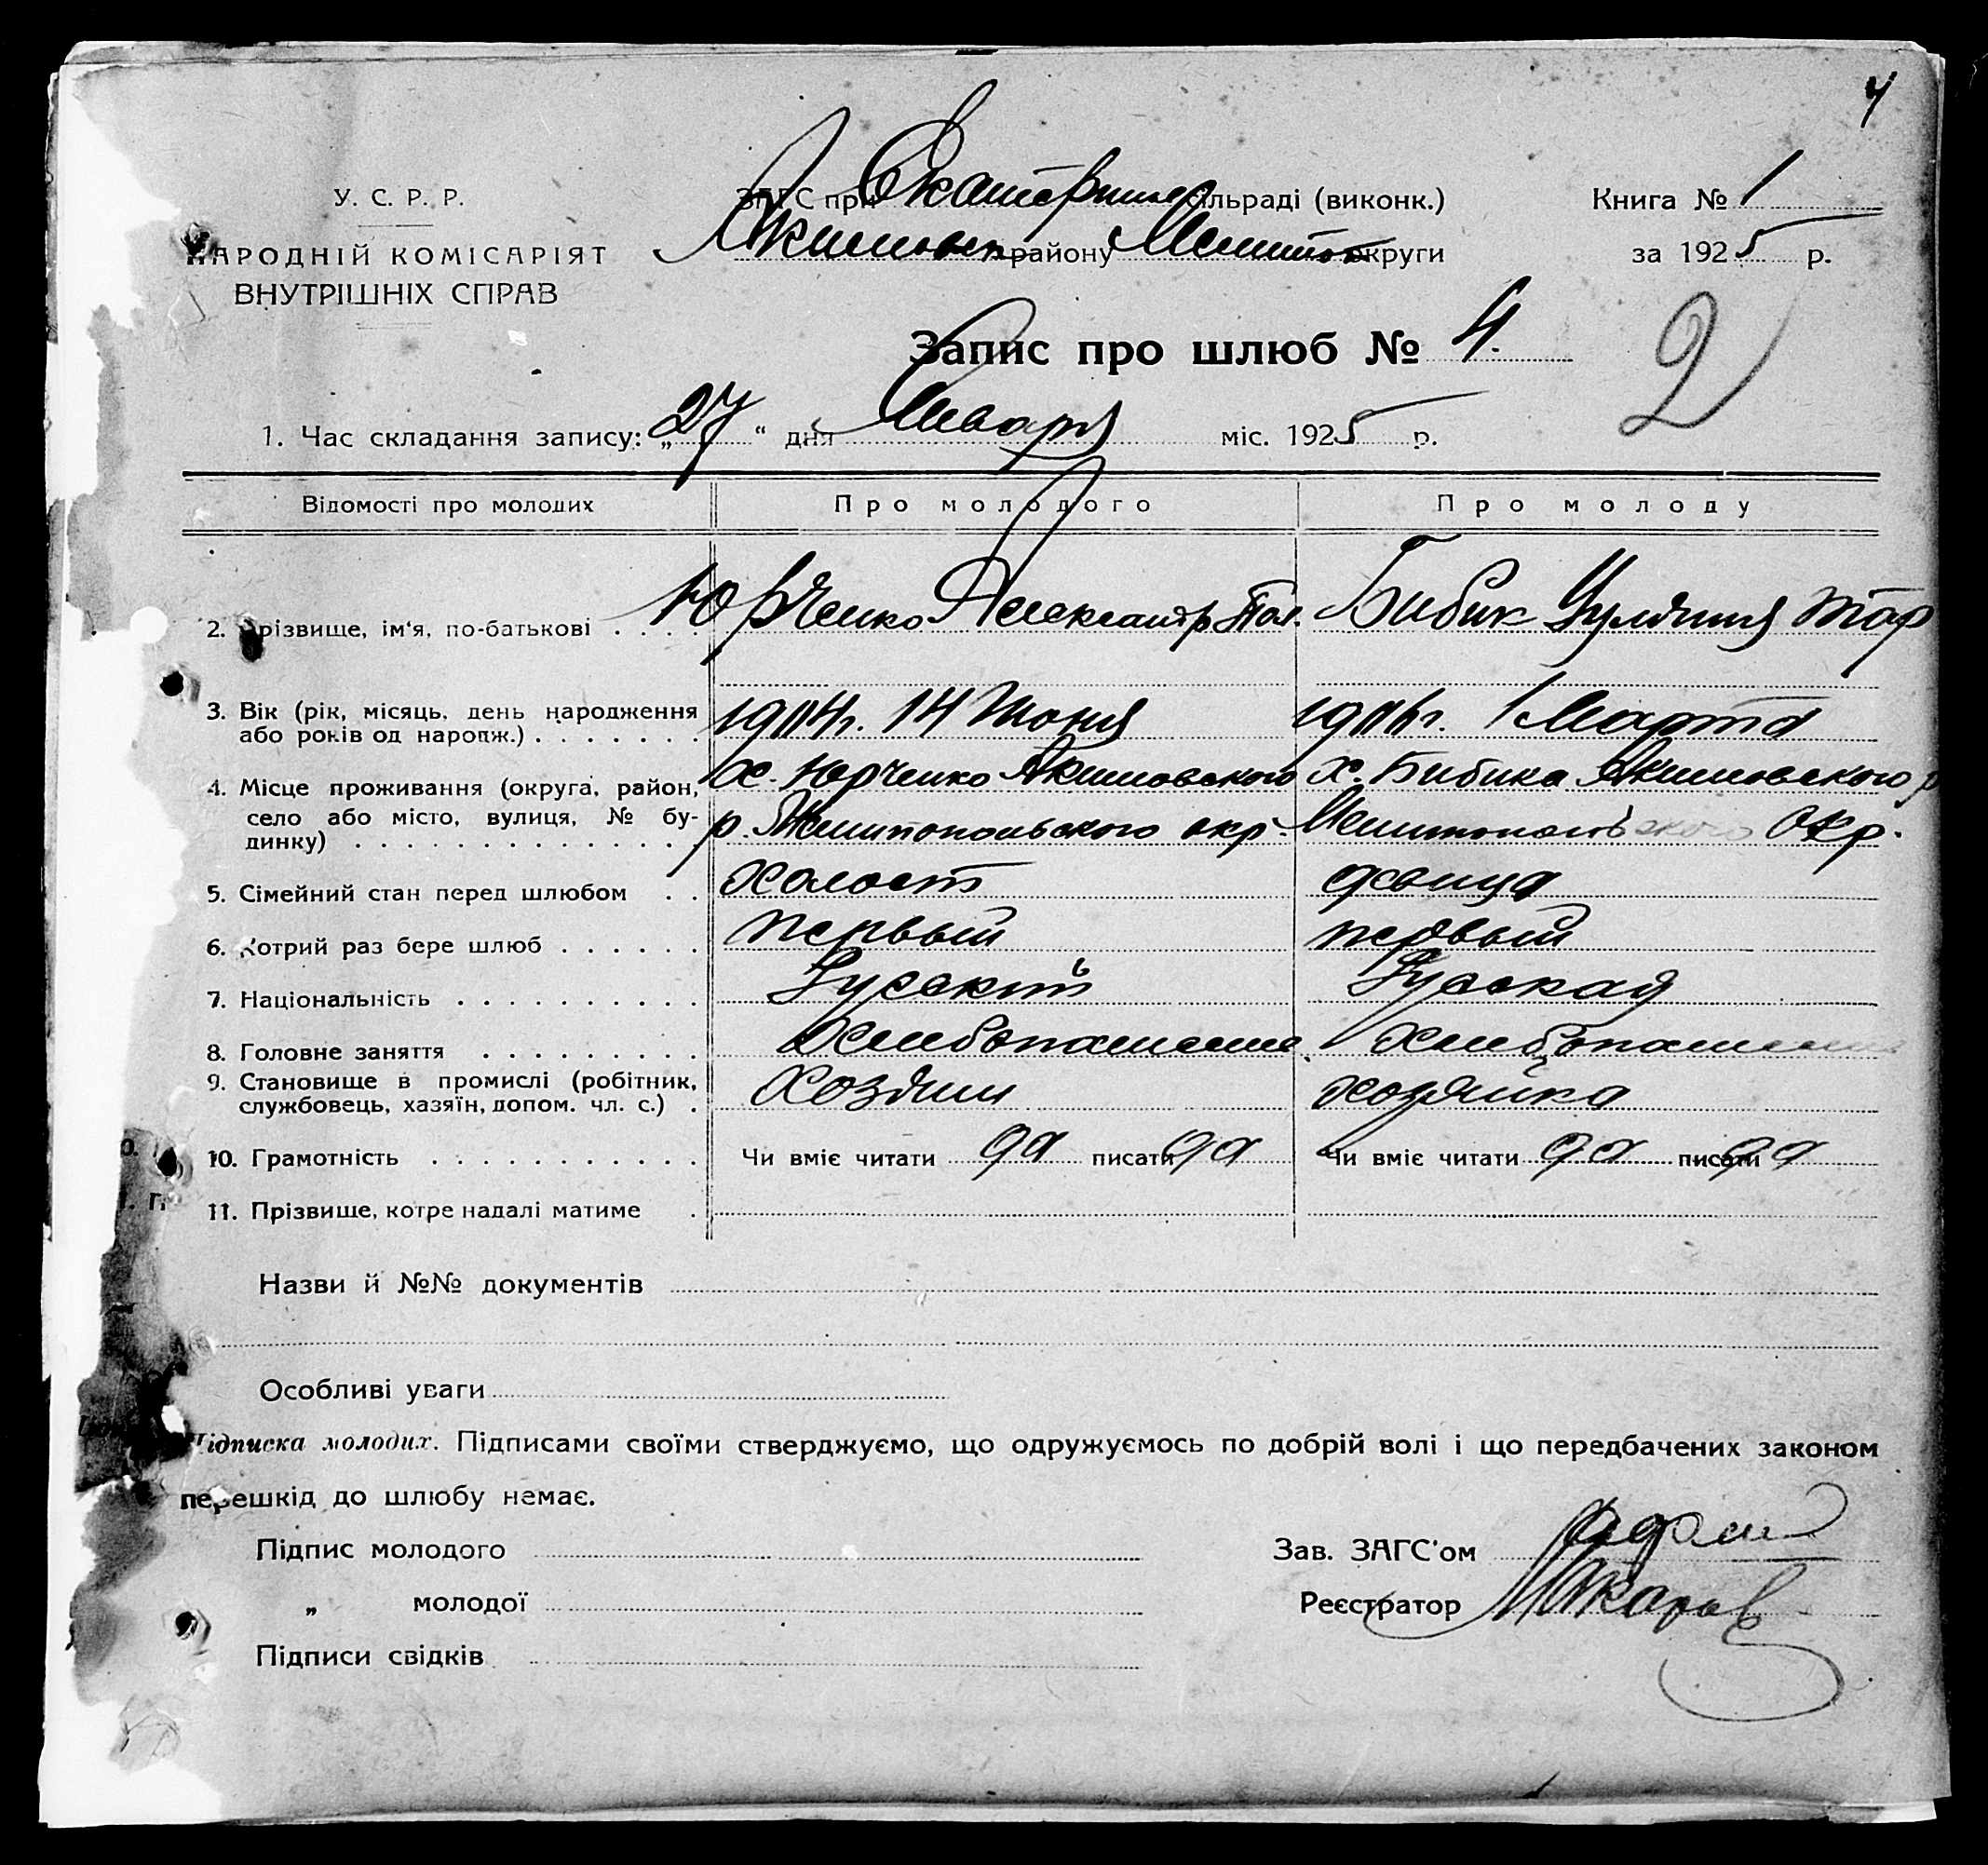 4
У. С. Р. Р.
НАРОДНІЙ КОМІСАРІЯТ
ВНУТРІШНІХ СПРАВ
ЗАГС при Екатерин сільраді (виконк.)
Акимовск району Мелитоп округи
Книга № 1
за 1925 р.
Запис про шлюб № 4.
2
1. Час складання запису: „27“ дня Января міс. 1925 р.
Відомості про молодих Про молодого Про молоду
2. Прізвище, ім'я, по-батькові . . . . Юрченко Александр Бибик
3. Вік (рік, місяць, день народження 14 Июня 1 Марта
або років од нарохж.) . . . . . . .
4. Місце проживання (округа, район, х. Юрченко Акимовского х. Бибика Акимовского р
село або місто, вулиця, № бу- р. Мелитопольского окр. Мелитопольского Окр.
динку) . . . . . . . . . . . . . .
5. Сімейний стан перед шлюбом . . холост девица
6. Котрий раз бере шлюб . . . . . . первый первый
7. Національність . . . . . . . . . . Русский Русская
8. Головне заняття . . . . . . . . . хлебопашение хлебопашение
9. Становище в промислі (робітник, Хозяин хозяйка
службовець, хазяїн, допом. чл. с.) .
10. Грамотність . . . . . . . . . . . Чи вміє читати да писати да Чи вміє читати да писати да
11. Прізвище, котре надалі матиме .
Назви й №№ документів
Особливі уваги
Підписка молодих. Підписами своїми стверджуємо, що одружуємось по добрій волі і що передбачених законом
перешкід до шлюбу немає.
Підпис молодого
„ молодої
Підписи свідків
Зав. ЗАГС'ом
Реєстратор Макаров